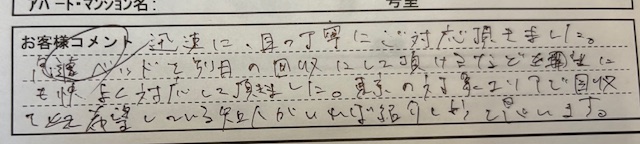 アパート・マンション名: 号室
お客様コメント 迅速に、且つ丁寧にご対応頂きました。
ベッドを別日の回収にして頂けるなど
も快よく対応して頂きました。東京の対象エリアで回収
を希望している知人がいれば紹介したいと思います。